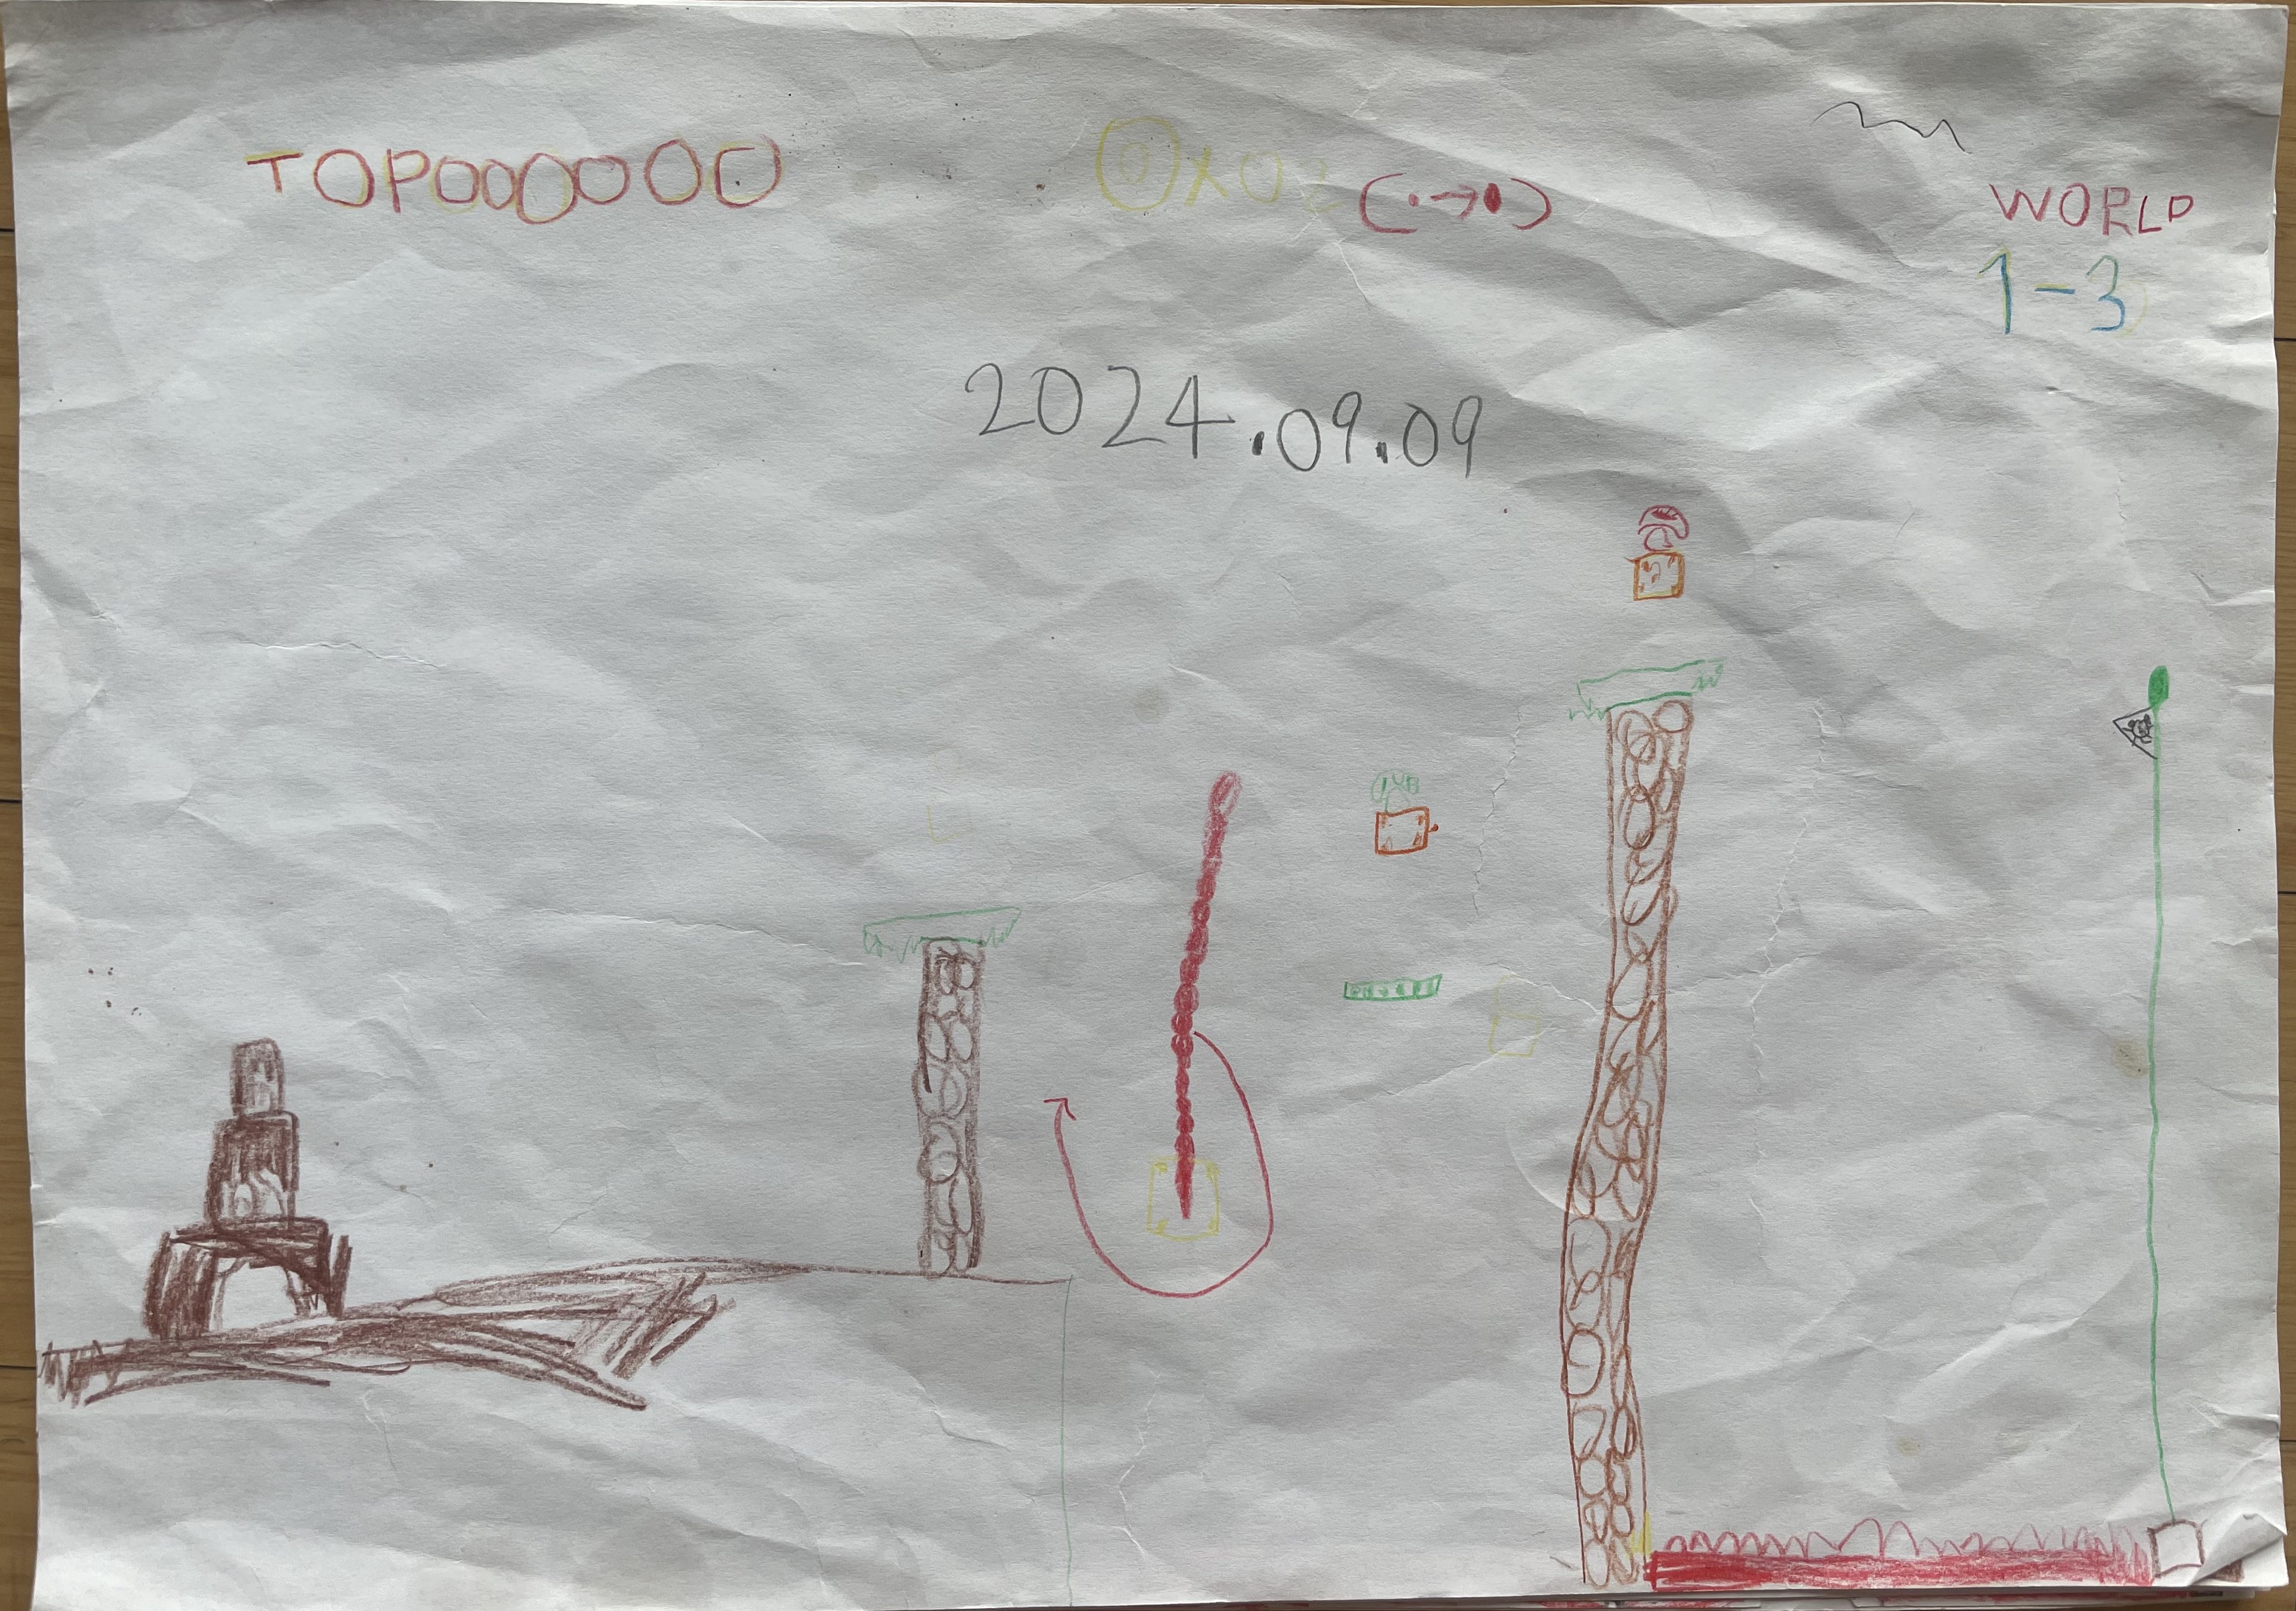 TOP000000
×02 (·→●)
WORLD
1-3
2024.09.09